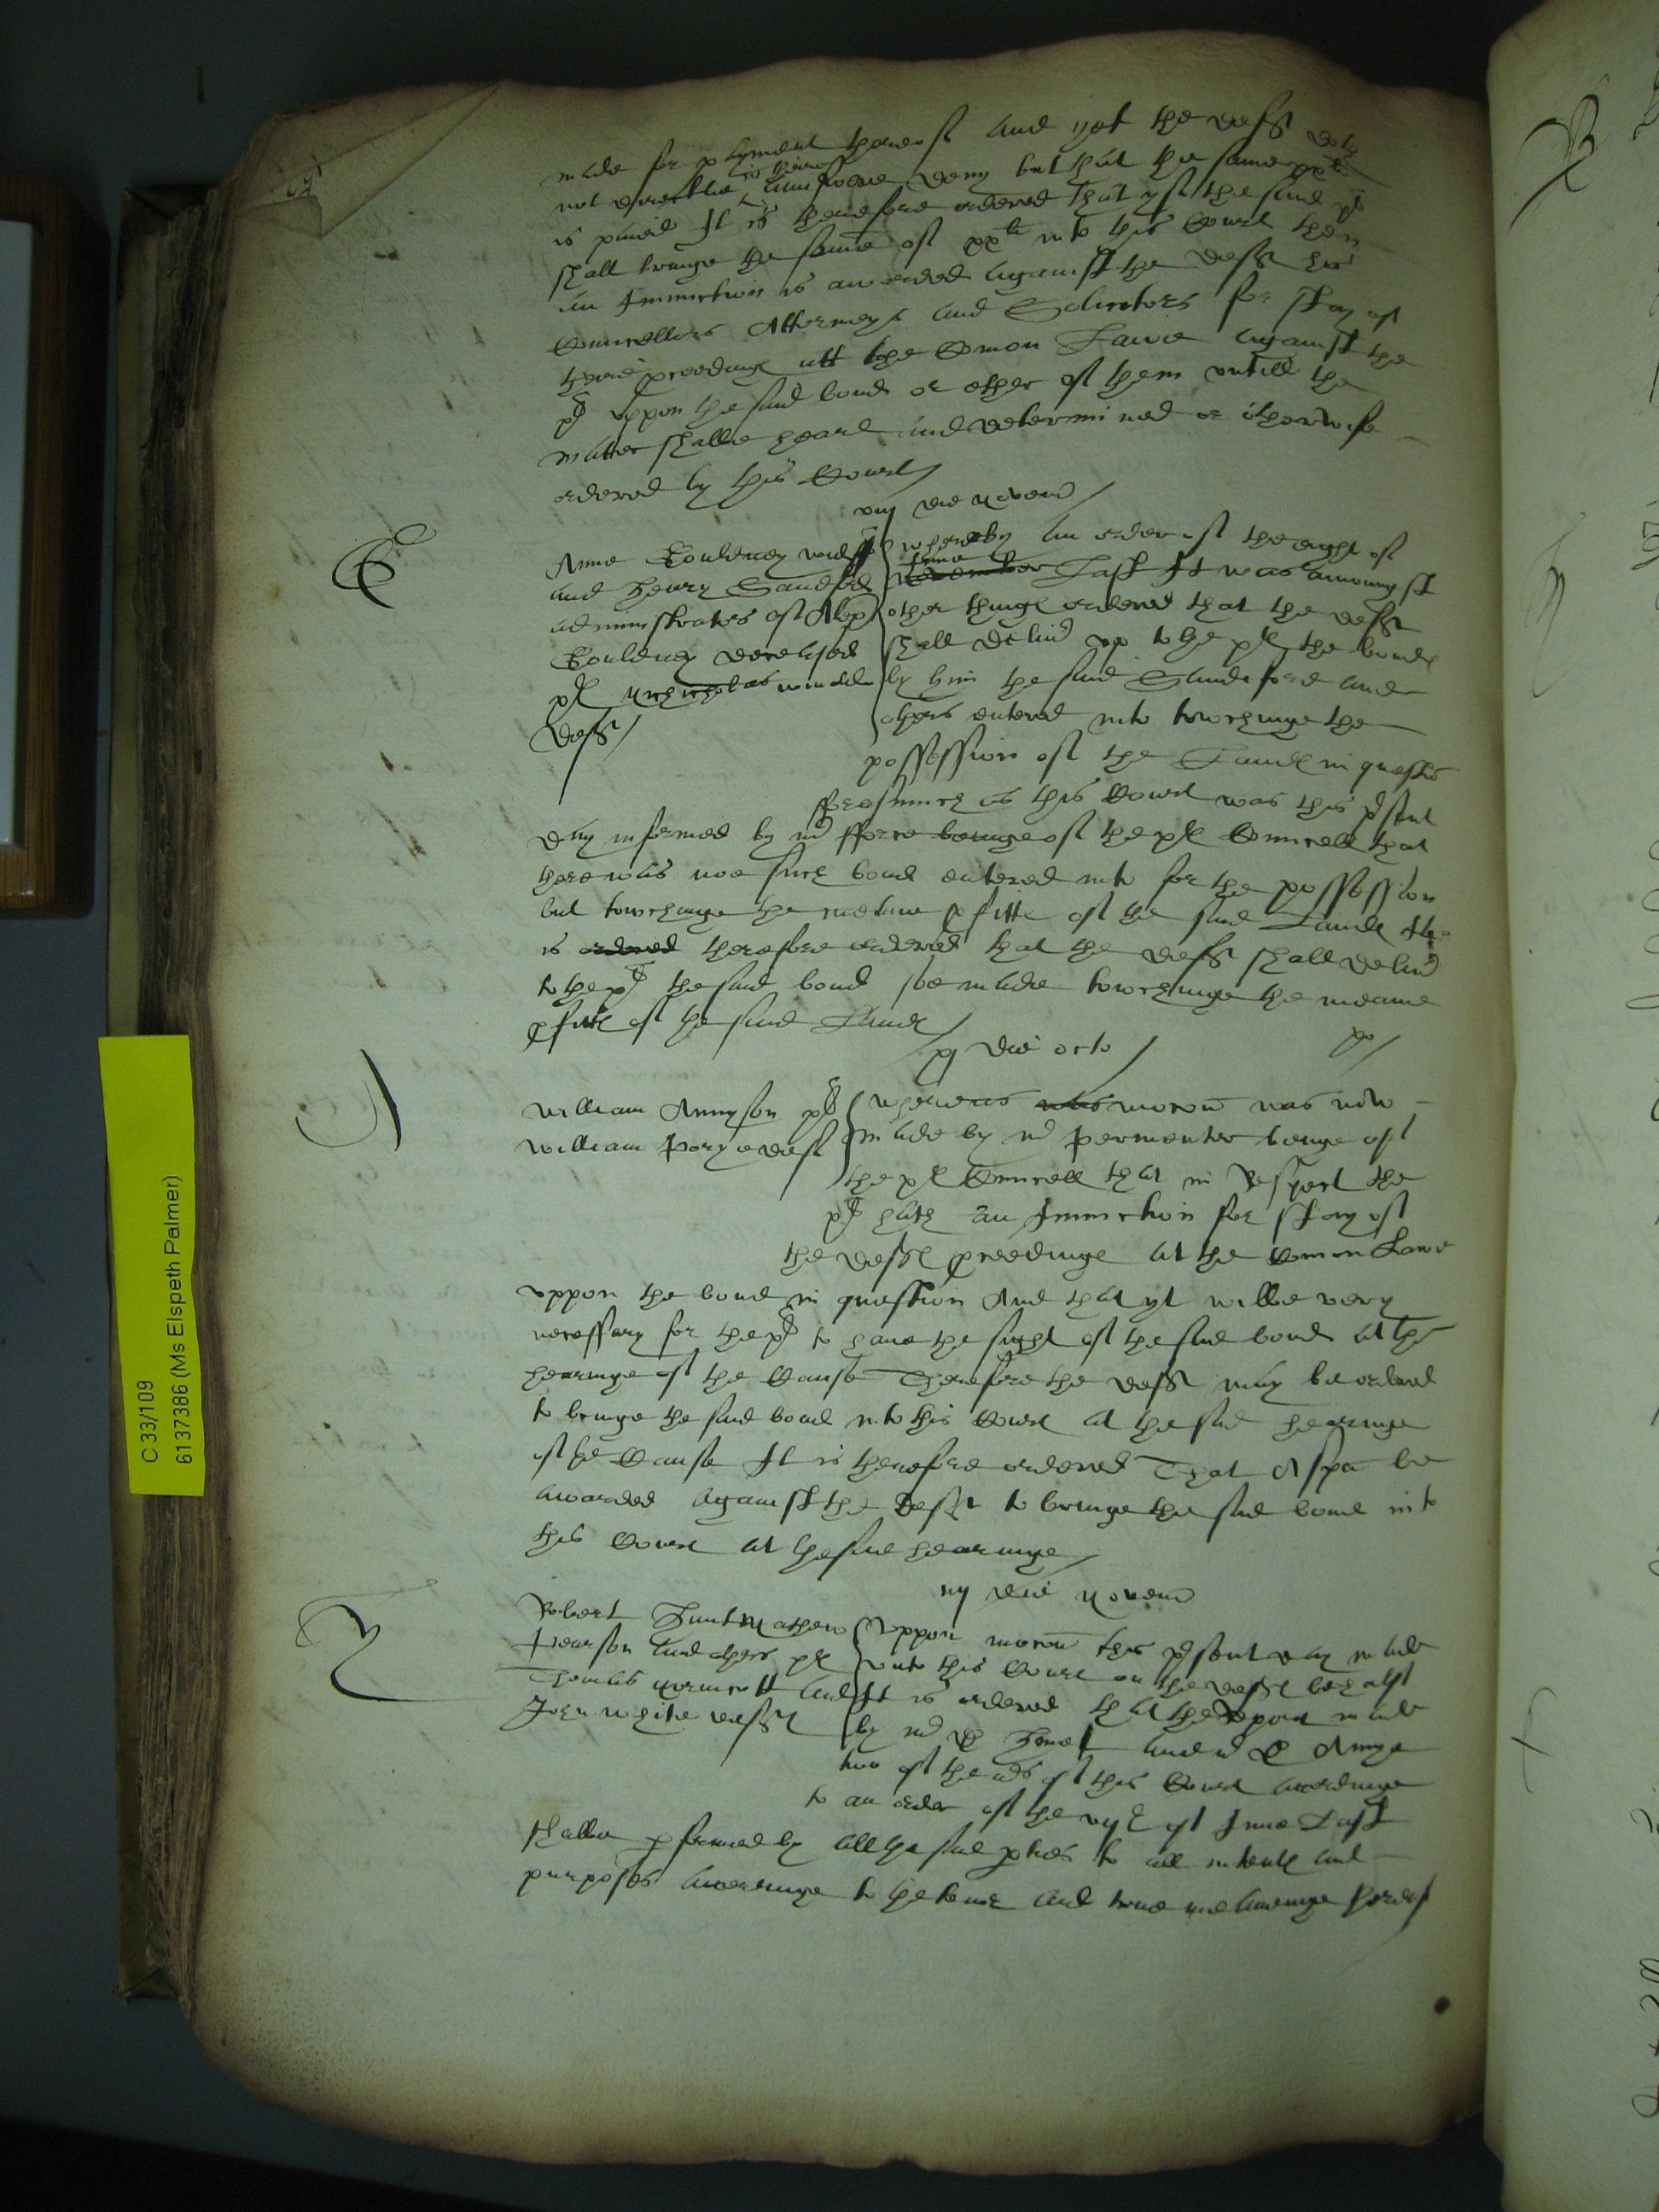 made for payment thereof And yet the deft doth
not directlie in his Aunswere deny but that the same xx li
is paied It is therefore ordered that yf the said pl
shall bringe the some of xx li into this Court then
an Iniunction is awarded against the deft his
Councellors Attorneys and Solicitors for stay of
their proceedinge att the Comon Lawe against the
pl vppon the said bond or other of them vntill the
matter shalbe heard and determined or otherwise
ordered by this Court
viij die Novem
Anne Gouldney widd
and Henry Sandford
administrators of Alex
Gouldney deceased
pl Nicholas
deft
whereby an order of the eight of
November June Last It was amongst
other things ordered that the deft
shall deliu vp to the pl the bond
by him the said Sandiford and
others entered into towchinge the
possession of the Land in question
Forasmuch as this Court was this psent
day informed by mr fforce beinge of the pl Councell that
there was noe such bond entered into for the possession
but towchinge the meane pfitte of the said Lande It
is ordered therefore ordered that the deft shall deliu
to the pl the said bond soe made towchinge the meane
pfitte of the said Lande
xj die octo
William Annyson pl
William Porye deft
whereas was mocon was now
made by mr Permenter beinge of
the pl Councell that in Respect the
pl hath an Iniunction for stay of
the deft pceedinge at the Comon Lawe
vppon the bond in question And that yt wilbe very
necessary for the pl to haue the sight of the said bond at the
hearinge of the Cause Therefore the deft may be ordered
to bringe the said bond into this Court at the said hearinge
of the Cause It is therefore ordered That A spa be
awarded against the deft to bringe the said bond into
this Court at the said hearinge
iij die Novem
Robert Hunt Mathew
Pearson and others pl
Thomas and
John White deft
Vppon mocon this psent day made
vnto this Court on the deft behalf
It is ordered that the Report made
by mr D and mr D Amye
two of the mrs of this Court accordinge
to an order of the vijth of June Last
shalbe pformed by all the said pties to all intents and
purposes accordinge to the tenor and true meaninge thereof
C 33/109
6137386 (Ms Elspeth Palmer)